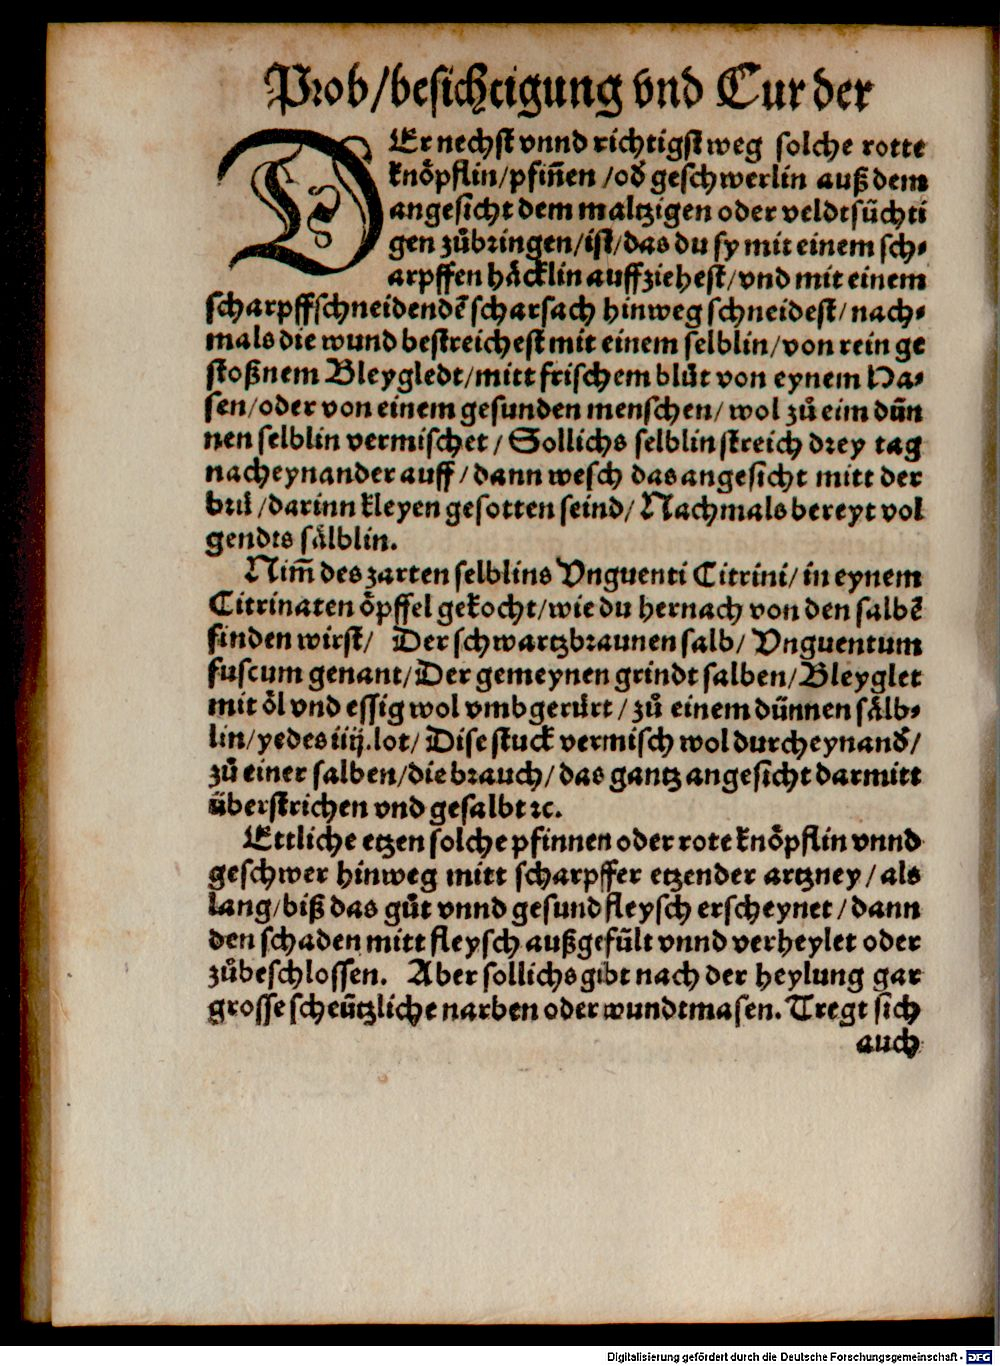 Prob/besichtigung vnd Cur der
DEr nechst vnnd richtigst weg solche rotte
knöpflin/pfiñen /od̕ geschwerlin auß dem
angesicht dem maltzigen oder veldtsüchti
gen zůbringen/ist/das du sy mit einem sch⸗
arpffen häcklin auffziehest/vnd mit einem
scharpffschneidendẽ scharsach hinweg schneidest/nach⸗
mals die wund bestreichest mit einem selblin/von rein ge
stoßnem Bleygledt/mitt frischem blůt von eynem Ha⸗
sen/oder von einem gesunden menschen/ wol zů eim dün
nen selblin vermischet / Sollichs selblin streich drey tag
nacheynander auff / dann wesch das angesicht mitt der
brü /darinn kleyen gesotten seind/ Nachmals bereyt vol
gendts sälblin.
Nim̃ des zarten selblins Vnguenti Citrini/ in eynem
Citrinaten öpffel gekocht/wie du hernach von den salbẽ
finden wirst/ Der schwartzbraunen salb/ Vnguentum
fuscum genant/Der gemeynen grindt salben/Bleyglet
mit öl vnd essig wol vmbgerürt / zů einem dünnen sälb⸗
lin/yedes iiij.lot/ Dise stuck vermisch wol durcheynand̕/
zů einer salben/die brauch/das gantz angesicht darmitt
überstrichen vnd gesalbt ꝛc.
Ettliche etzen solche pfinnen oder rote knöpflin vnnd
geschwer hinweg mitt scharpffer etzender artzney / als
lang/biß das gůt vnnd gesund fleysch erscheynet / dann
den schaden mitt fleysch außgefült vnnd verheylet oder
zůbeschlossen. Aber sollichs gibt nach der heylung gar
grosse scheützliche narben oder wundtmasen. Tregt sich
auch
Digitalisierung gefördert durch die Deutsche Forschungsgemeinschaft - DFG